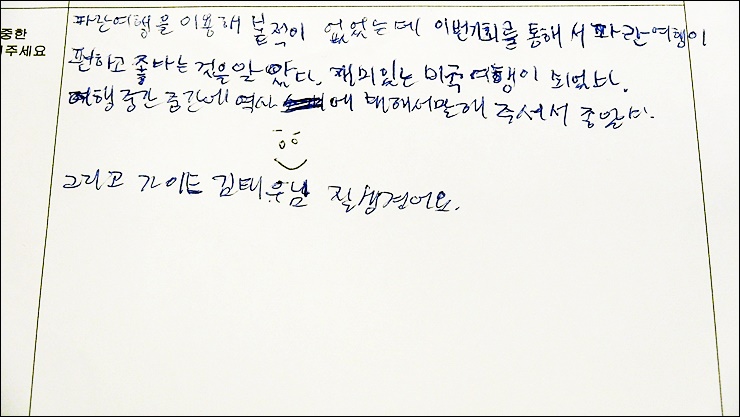 파란여행을 이용해 본적이 없었는데 이번기회를 통해서 파란여행이
중한
편하고 좋다는 것을 알았다. 재미있는 미국여행이 되었다.
주세요
여행 중간중간에 역사에 대해서말해 주셔서 좋았다.
그리고 가이드 김태우님 잘생겼어요.